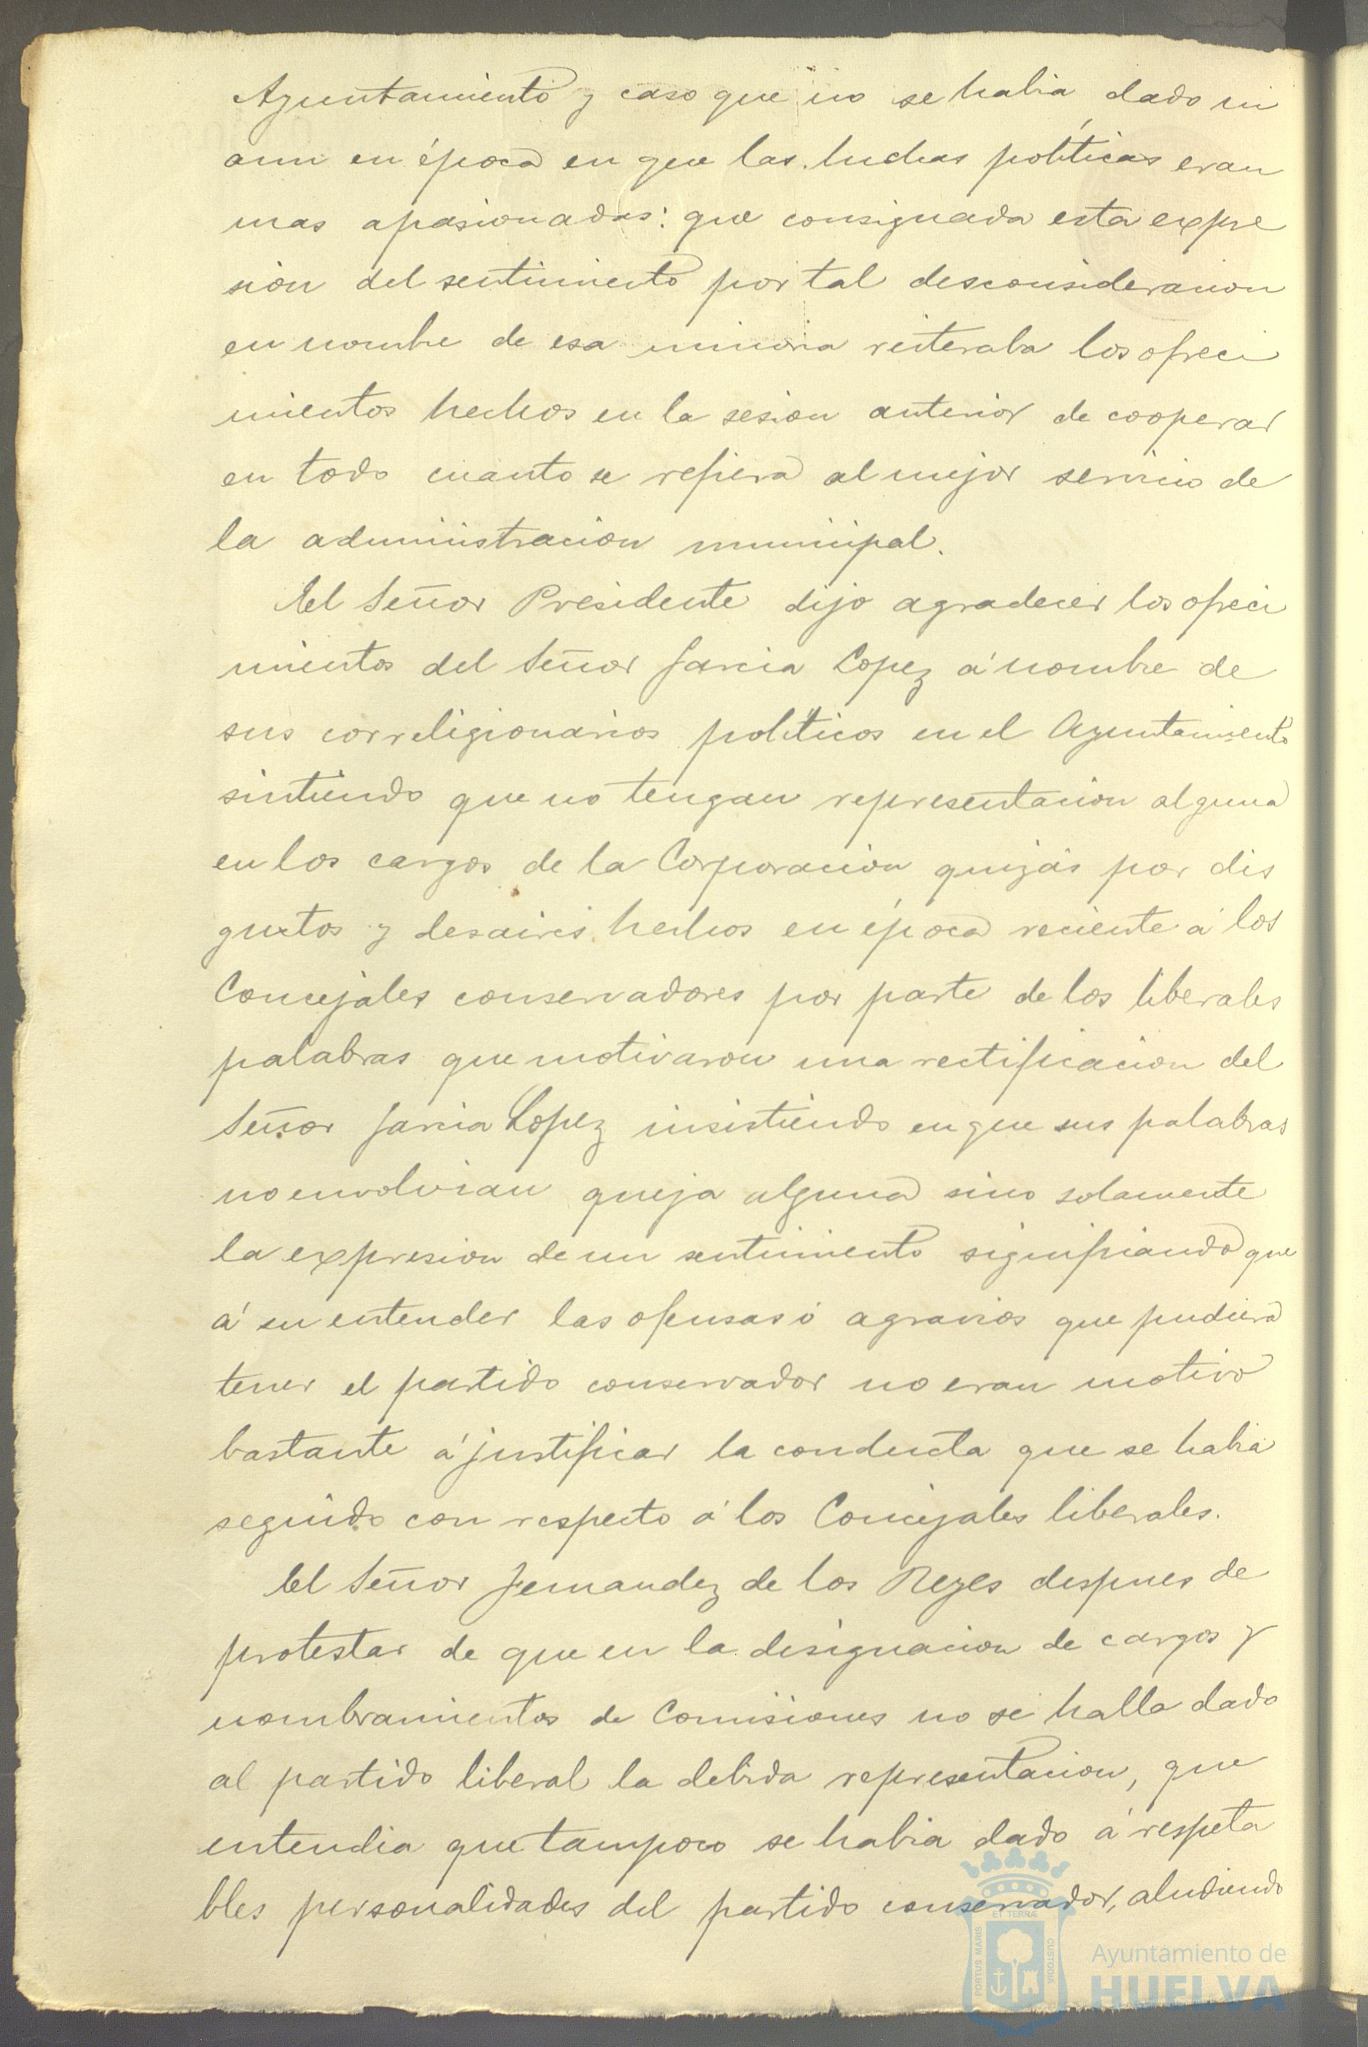 Ayuntamiento y caso que no se habia dado ni
aun en época en que las luchas políticas eran
mas apasionadas: que consignada esta expre
sion del sentimiento por tal desconsideracion
en nombre de esa minoria reiteraba los ofreci
mientos hechos en la sesion anterior de cooperar
en todo cuanto se refiera al mejor servicio de
la administracion municipal.
El Señor Presidente dijo agradecer los ofreci
mientos del Señor Garcia Lopez á nombre de
sus correligionarios políticos en el Ayuntamiento
sintiendo que no tengan representacion alguna
en los cargos de la Corporacion quizás por dis
gustos y desaires hechos en época reciente á los
Concejales conservadores por parte de los liberales
palabras que motivaron una rectificacion del
Señor Garcia Lopez insistiendo en que sus palabras
no envolvian queja alguna sino solamente
la expresion de un sentimiento significando que
á su entender las ofensas ó agravios que pudiera
tener el partido conservador no eran motivo
bastante á justificar la conducta que se habia
seguido con respecto á los Concejales liberales.
El Señor Fernandez de los Reyes despues de
protestar de que en la designacion de cargos y
nombramientos de Comisiones no se halla dado
al partido liberal la debida representacion, que
entendia que tampoco se habia dado á respeta
bles personalidades del partido conservador, aludiendo
PORTUS MARIS ET TERRÆ CUSTODIA
Ayuntamiento de
HUELVA